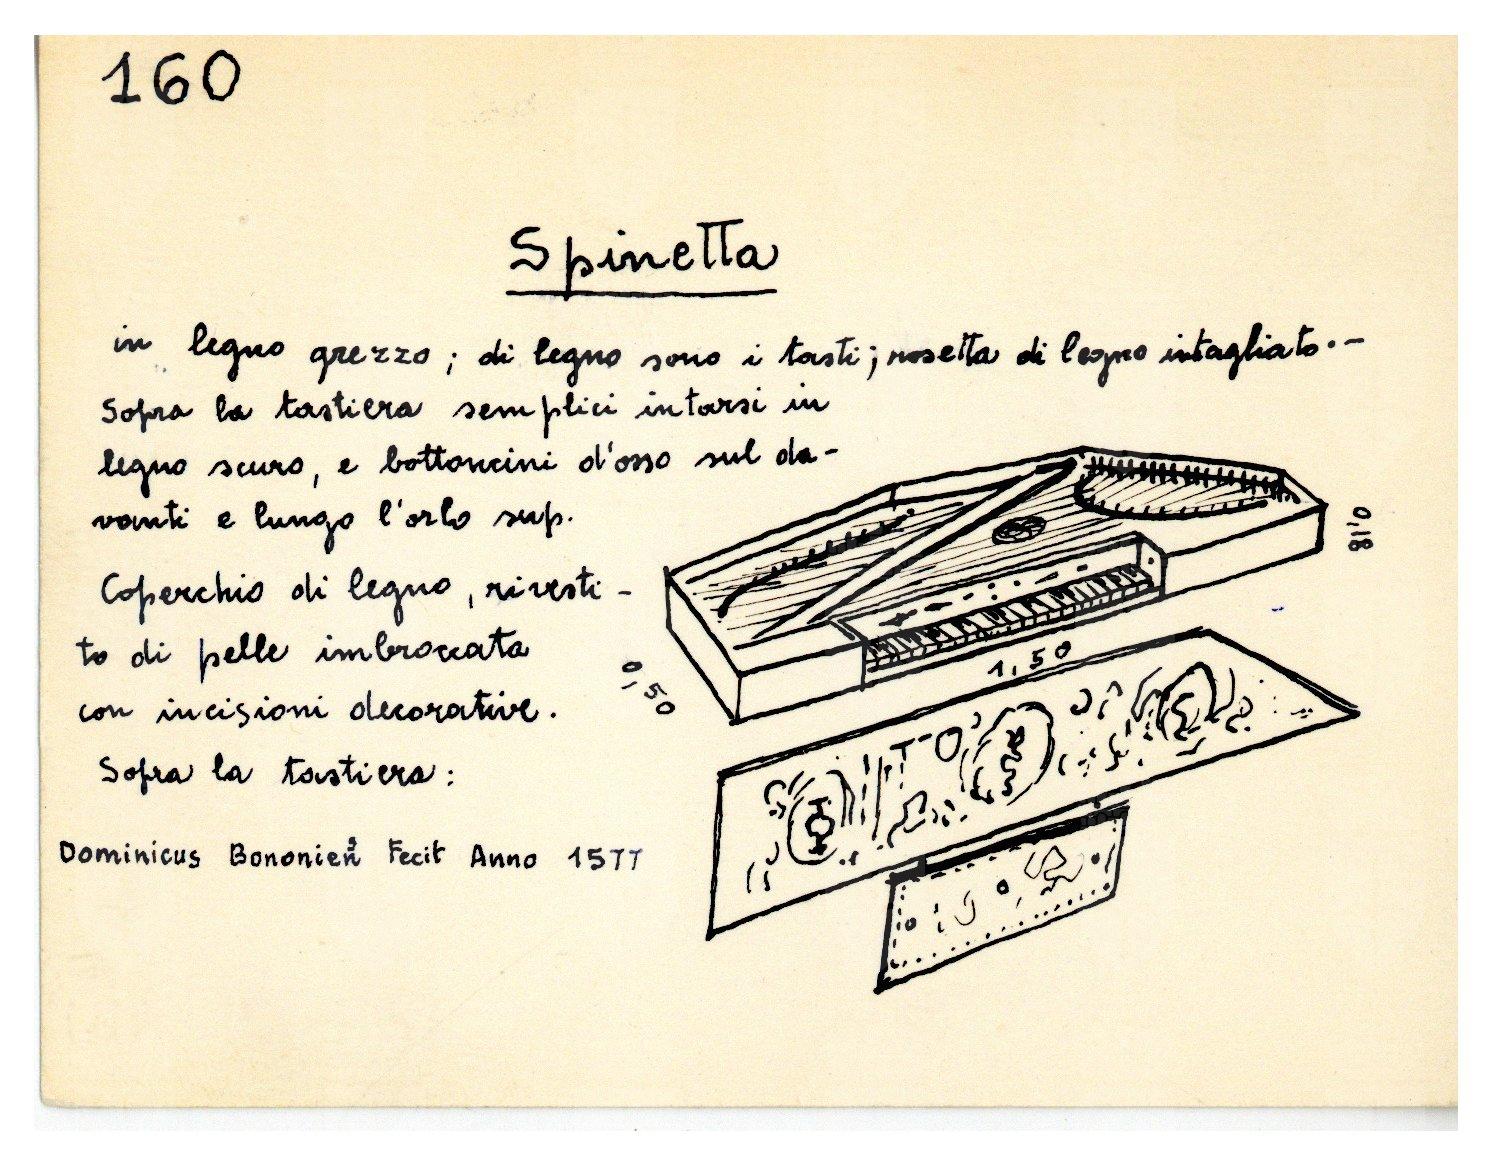 160
Spinetta
in legno grezzo; di legno sono i tasti; rosetta di legno intagliato.-
Sopra la tastiera semplici intarsi in
legno scuro, e bottoncini d'osso sul da-
vanti e lungo l'orlo sup.
Coperchio di legno, rivesti-
to di pelle imbroccata
con incisioni decorative.
Sopra la tastiera:
Dominicus Bononien̄s Fecit Anno 1577
0,18
1,50
0,50